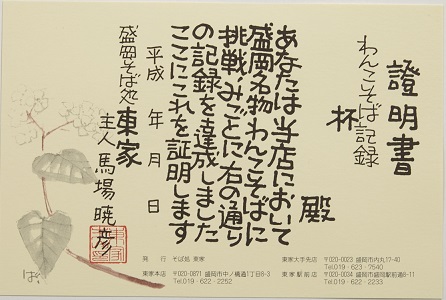 證明書
わんこそば記録
杯
殿
あなたは当店において
盛岡名物わんこそばに
挑戦、みごとに右の通り
の記録を達成しました
ここにこれを証明します
平成 年 月 日
盛岡そば処 東家
主人 馬場 暁彦
東家
ばば
発 行 そば処 東家
東家本店 〒020-0871 盛岡市中ノ橋通1丁目8-3
Tel.019 - 622 - 2252
東家大手先店 〒020-0023 盛岡市内丸17-40
Tel.019 - 623 - 7540
東家駅前店 〒020-0034 盛岡市盛岡駅前通8-11
Tel.019 - 622 - 2233